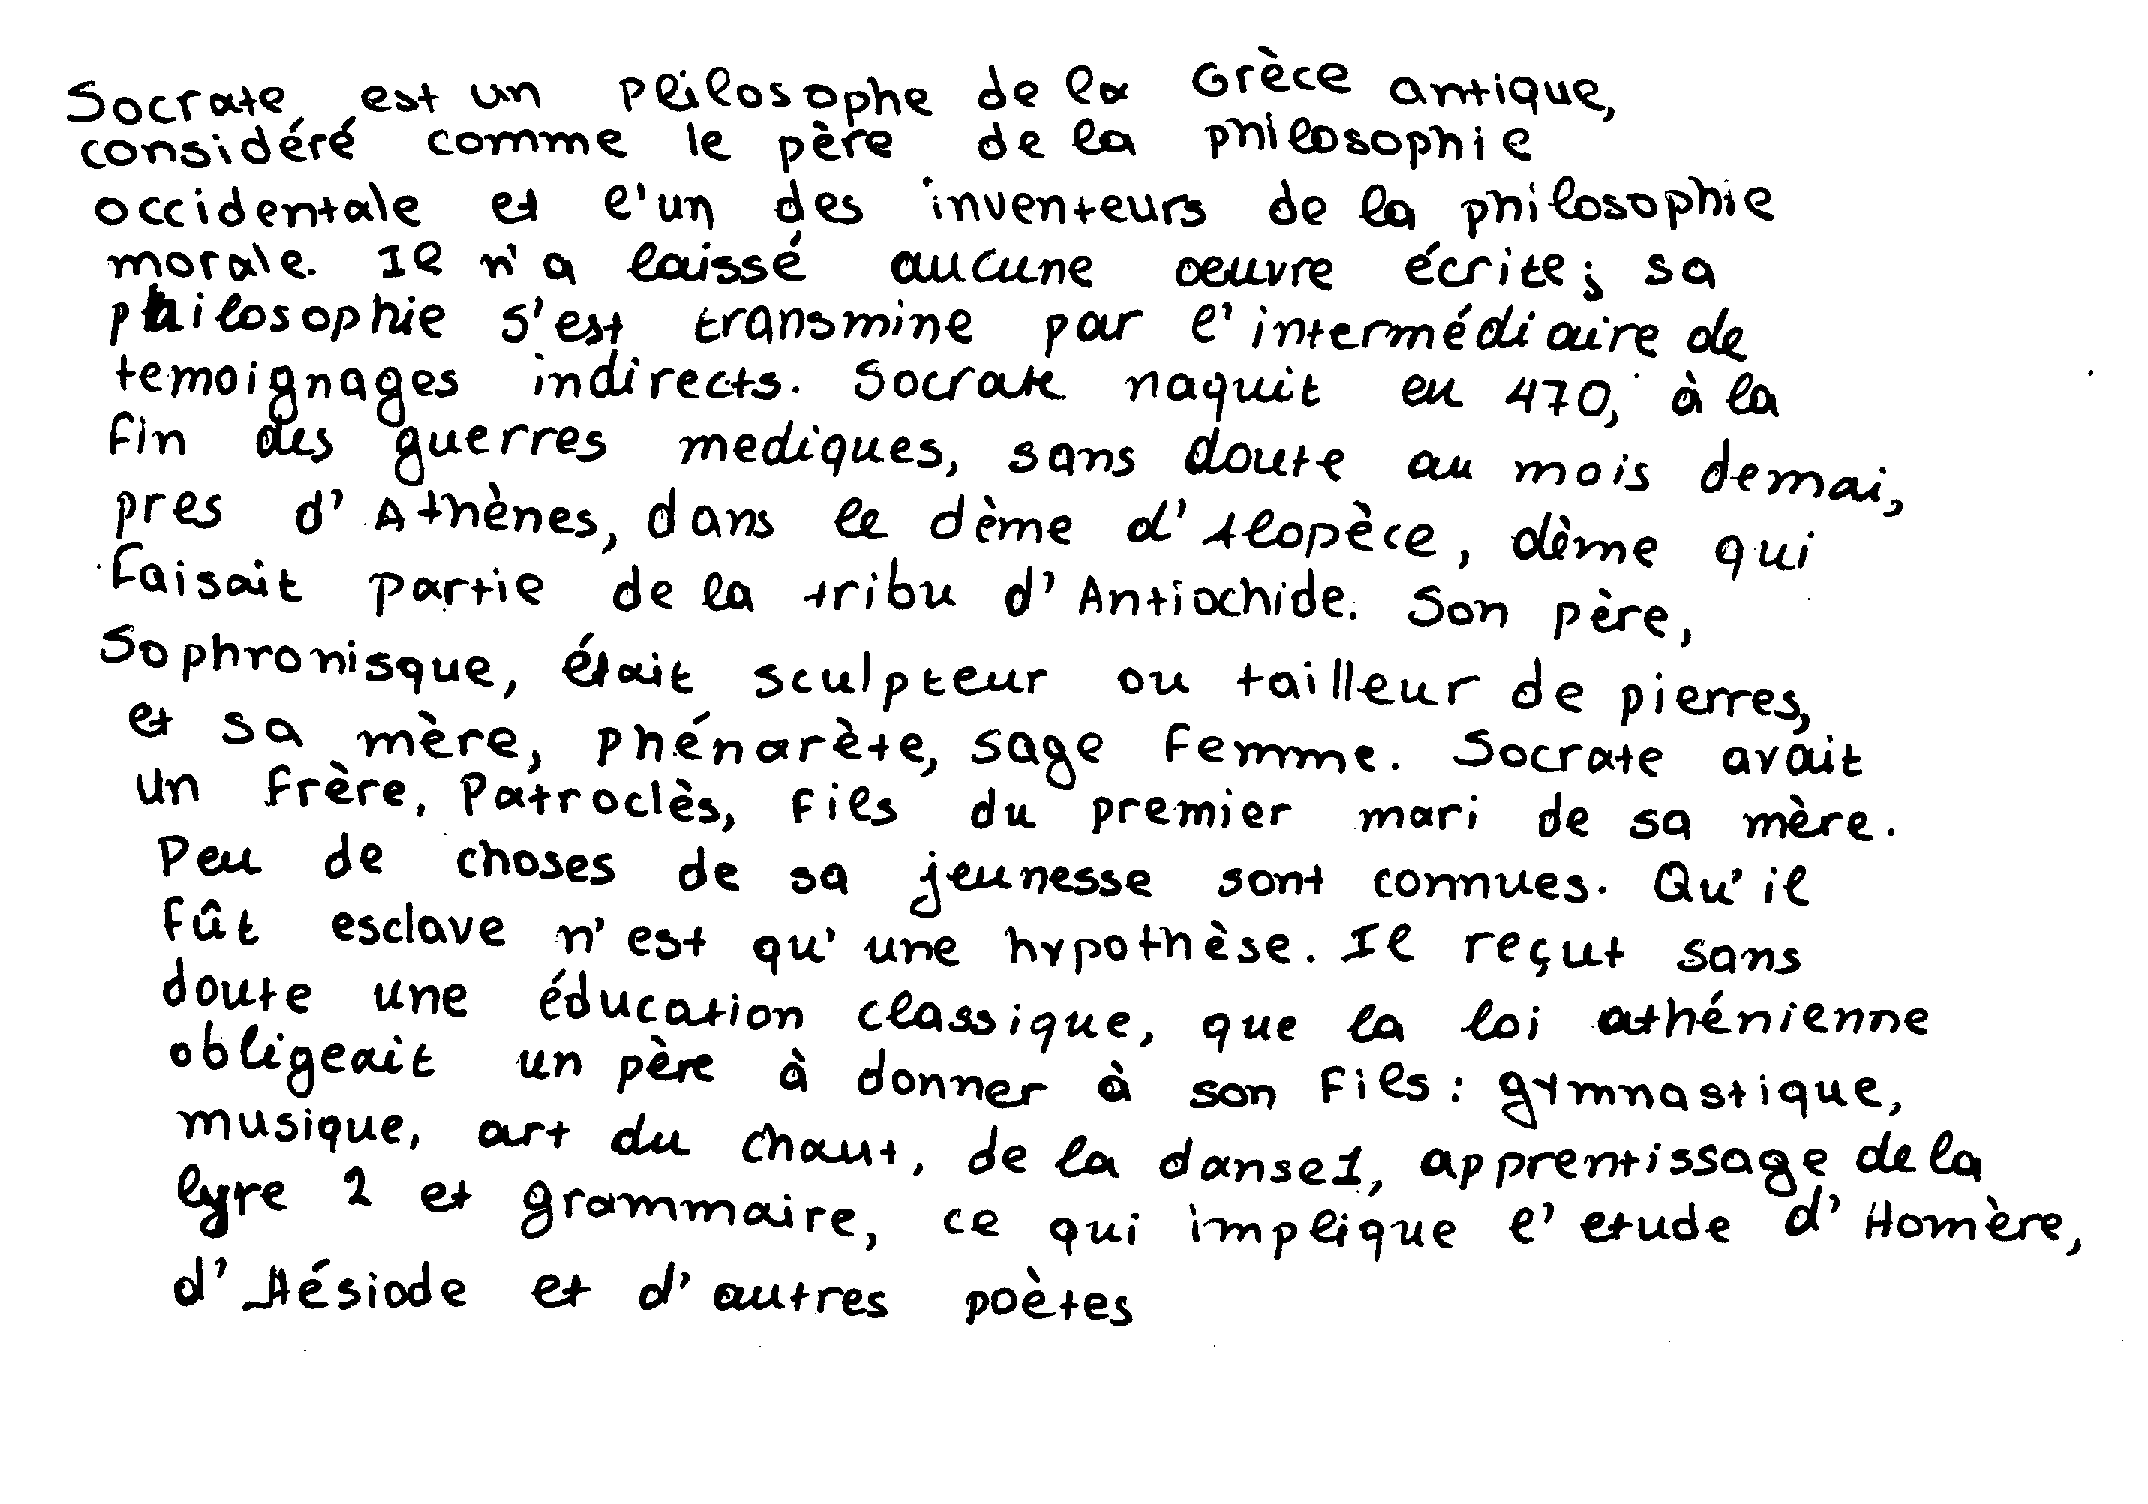 Socrate est un philosophe de la Grèce antique,
considéré comme le père de la philosophie
occidentale et l'un des inventeurs de la philosophie
morale. Il n'a laissé aucune oeuvre écrite; sa
philosophie s'est transmine par l'intermédiaire de
temoignages indirects. Socrate naquit en 470, à la
fin des guerres mediques, sans doute au mois demai,
pres d'Athènes, dans le dème d'Alopèce, dème qui
faisait partie de la tribu d'Antiochide. Son père,
Sophronisque, était sculpteur ou tailleur de pierres,
et sa mère, phénarète, sage femme. Socrate avait
un frère, Patroclès, fils du premier mari de sa mère.
Peu de choses de sa jeunesse sont connues. Qu'il
fût esclave n'est qu'une hypothèse. Il reçut sans
doute une éducation classique, que la loi athénienne
obligeait un père à donner à son fils : gymnastique,
musique, art du chant, de la danse1, apprentissage de la
lyre 2 et grammaire, ce qui implique l'etude d'Homère,
d'Hésiode et d'autres poètes